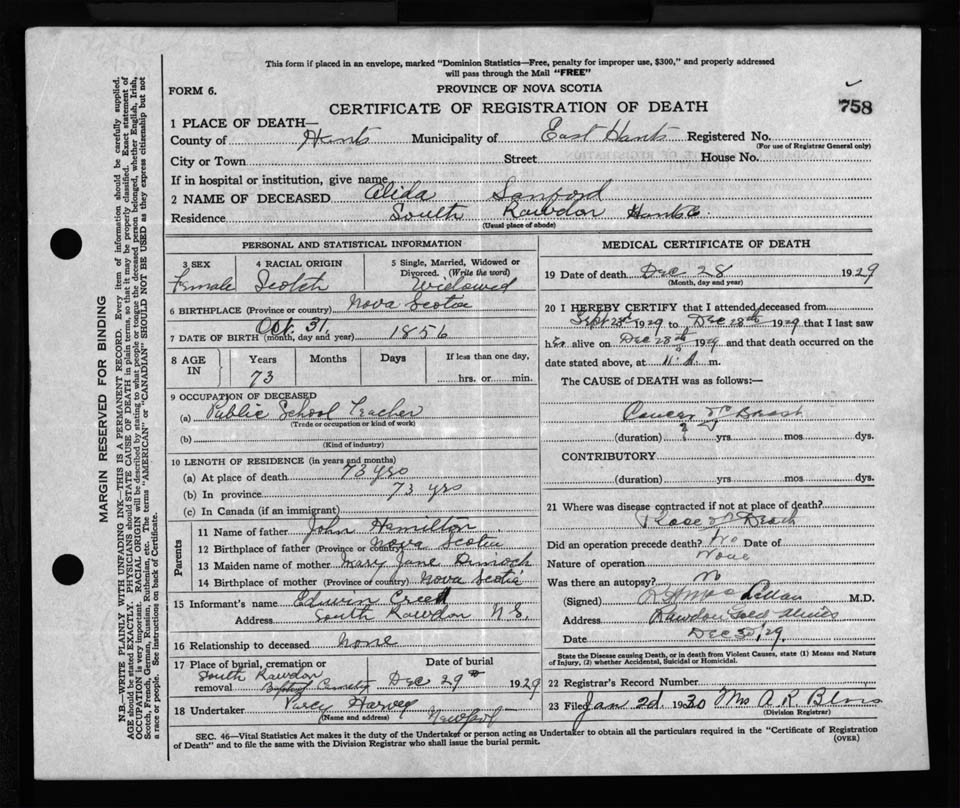 This form if placed in an envelope, marked "Dominion Statistics—Free, penalty for improper use, $300," and properly addressed
will pass through the Mail "FREE"
FORM 6.
PROVINCE OF NOVA SCOTIA
758
CERTIFICATE OF REGISTRATION OF DEATH
1 PLACE OF DEATH—
County of Hants Municipality of East Hants Registered No.
(For use of Registrar General only)
City or Town Street House No.
If in hospital or institution, give name
2 NAME OF DECEASED Alida Sanford
Residence South Rawdon Hants Co.
(Usual place of abode)
PERSONAL AND STATISTICAL INFORMATION
3 SEX 4 RACIAL ORIGIN 5 Single, Married, Widowed or
Divorced. (Write the word)
Female Scotch Widowed
6 BIRTHPLACE (Province or country) Nova Scotia
7 DATE OF BIRTH (month, day and year) Oct. 31, 1856
8 AGE IN Years Months Days If less than one day,
73 hrs. or min.
9 OCCUPATION OF DECEASED
(a) Public School Teacher
(Trade or occupation or kind of work)
(b)
(Kind of industry)
10 LENGTH OF RESIDENCE (in years and months)
(a) At place of death 73 yrs
(b) In province 73 yrs
(c) In Canada (if an immigrant)
Parents
11 Name of father John Hamilton
12 Birthplace of father (Province or country) Nova Scotia
13 Maiden name of mother Mary Jane Dimock
14 Birthplace of mother (Province or country) Nova Scotia
15 Informant's name Edwin Creed
Address South Rawdon N S.
16 Relationship to deceased None
17 Place of burial, cremation or removal Date of burial
South Rawdon Baptist Cemetery Dec 29th 1929
18 Undertaker Percy Harvey
(Name and address) Newport
MEDICAL CERTIFICATE OF DEATH
19 Date of death Dec 28 1929
(Month, day and year)
20 I HEREBY CERTIFY that I attended deceased from
Sept 23d 1929 to Dec 28th 1929 that I last saw
her alive on Dec 28th 1929 and that death occurred on the
date stated above, at 11. A. m.
The CAUSE of DEATH was as follows:—
Cancer of Breast
(duration) ? 2 yrs mos dys.
CONTRIBUTORY
(duration) yrs mos dys.
21 Where was disease contracted if not at place of death?
Place of Death
Did an operation precede death? No Date of
Nature of operation None
Was there an autopsy? No
(Signed) M.D.
Address Rawdon Gold Mines
Date Dec 30, 29.
State the Disease causing Death, or in death from Violent Causes, state (1) Means and Nature
of Injury, (2) whether Accidental, Suicidal or Homicidal.
22 Registrar's Record Number
23 Filed Jan 2d. 1930 Mrs A. R.
(Division Registrar)
SEC. 46—Vital Statistics Act makes it the duty of the Undertaker or person acting as Undertaker to obtain all the particulars required in the "Certificate of Registration
of Death" and to file the same with the Division Registrar who shall issue the burial permit.
(OVER)
MARGIN RESERVED FOR BINDING
N.B.—WRITE PLAINLY WITH UNFADING INK—THIS IS A PERMANENT RECORD. Every item of information should be carefully supplied.
AGE should be stated EXACTLY. PHYSICIANS should STATE CAUSE OF DEATH in plain terms, so that it may be properly classified. Exact statement of
OCCUPATION is very important. RACIAL ORIGIN will be described by stating to what people or tongue the deceased person belonged, whether English, Irish,
Scotch, French, German, Russian, Ruthenian, etc. The terms "AMERICAN" or "CANADIAN" SHOULD NOT BE USED as they express citizenship but not
a race or people. See instructions on back of Certificate.